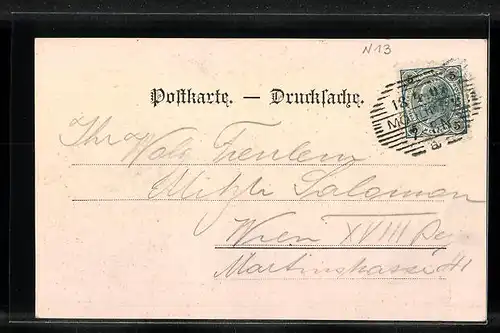 N13
Postkarte. — Drucksache.
Ihro Wohl
Mitzli Salomon
Wien XVIII Bez
Martinstrasse 41